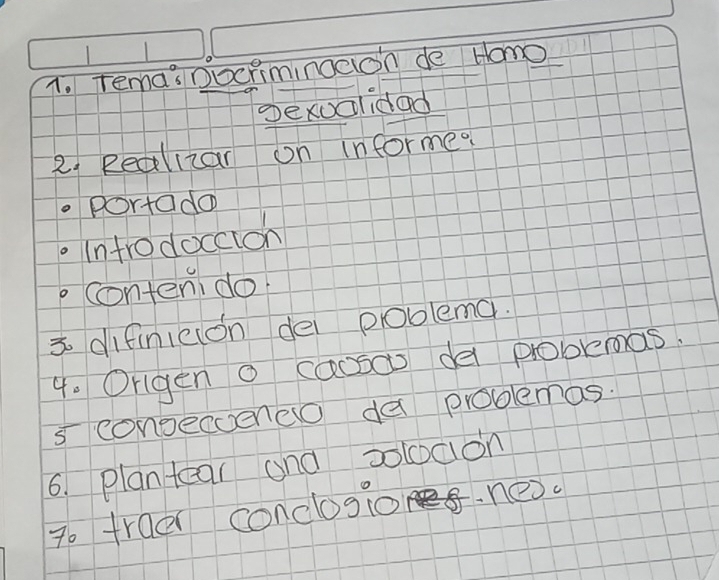 1. Tema: Discriminación de Homo
sexualidad
2. Realizar un informe:
• portada
• Introducción
• Contenido.
3. difinición del problema.
4. Origen o causas del problemas.
5 consecuencia del problemas.
6. plantear una solución
7. traer conclusiones.nes.